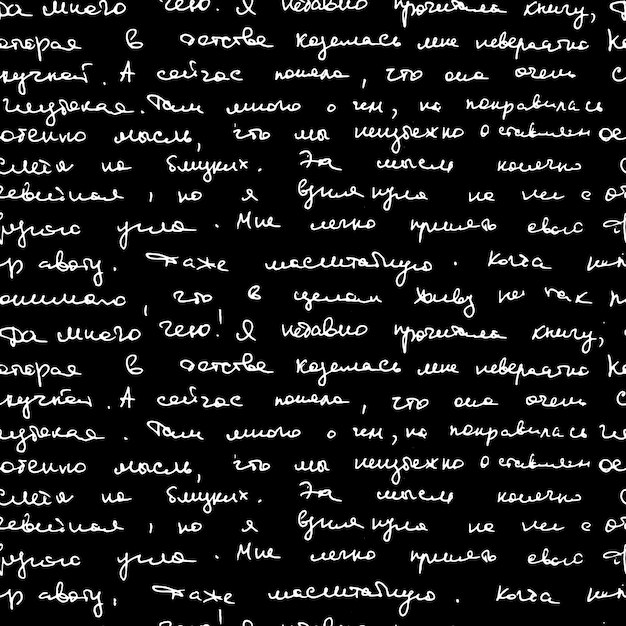 Да много чего! Я недавно прочитала книгу,
оторая в детстве казалась мне невероятно
кучной. А сейчас поняла, что она очень
глубокая. Там много о чем, но понравилась
отенно мысль, что мы неизбежно оставляем
на близких. Эта мысль конечно
но я взглянула на нее с
ругого угла. Мне легко принять свою
р авоту. Даже масштабную. Когда
онимаю, что в целом живу не так
Да много чего! Я недавно прочитала книгу,
оторая в детстве казалась мне невероятно
кучной. А сейчас поняла, что она очень
лубокая. Там много о чем, но понравилась
отенно мысль, что мы неизбежно оставляем
на близких. Эта мысль конечно
но я взглянула на нее с
ругого угла. Мне легко принять свою
р авоту. Даже масштабную. Когда